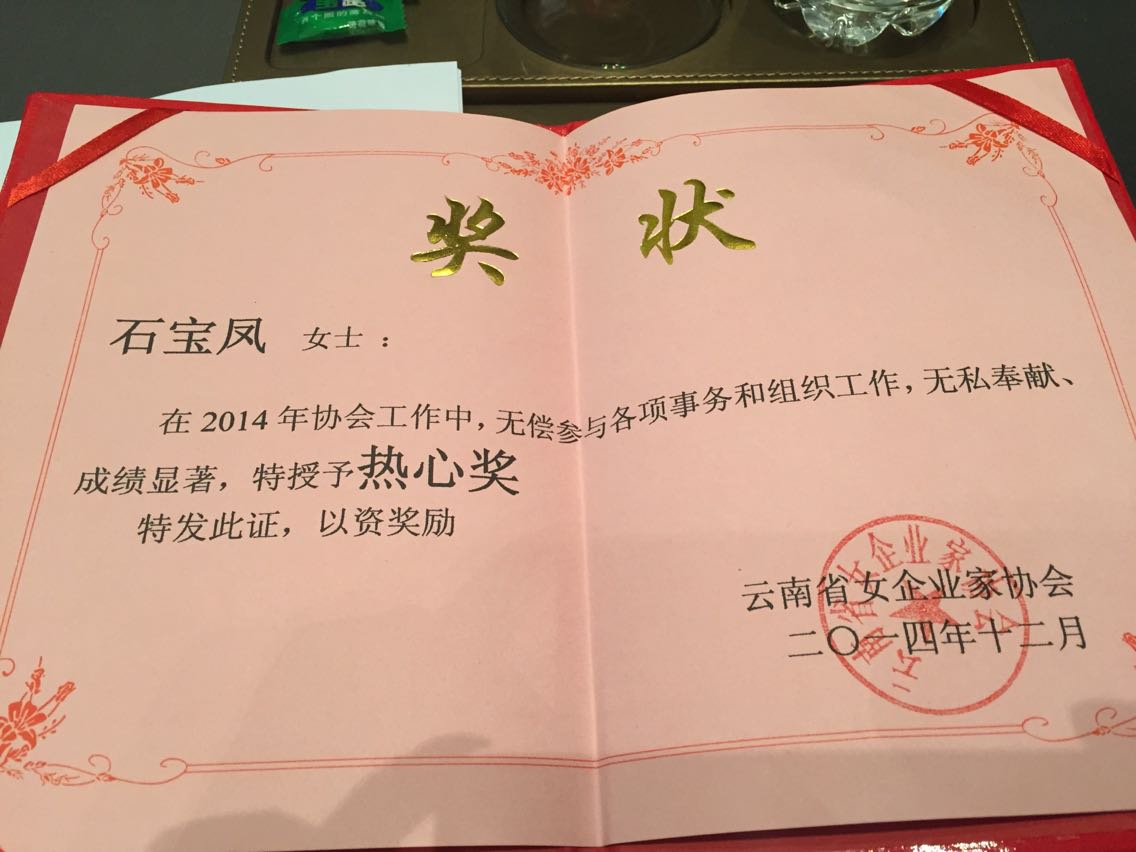 奖状
石宝凤 女士：
在2014年协会工作中，无偿参与各项事务和组织工作，无私奉献、
成绩显著，特授予热心奖
特发此证，以资奖励
云南省女企业家协会
二〇一四年十二月
云南省女企业家协会